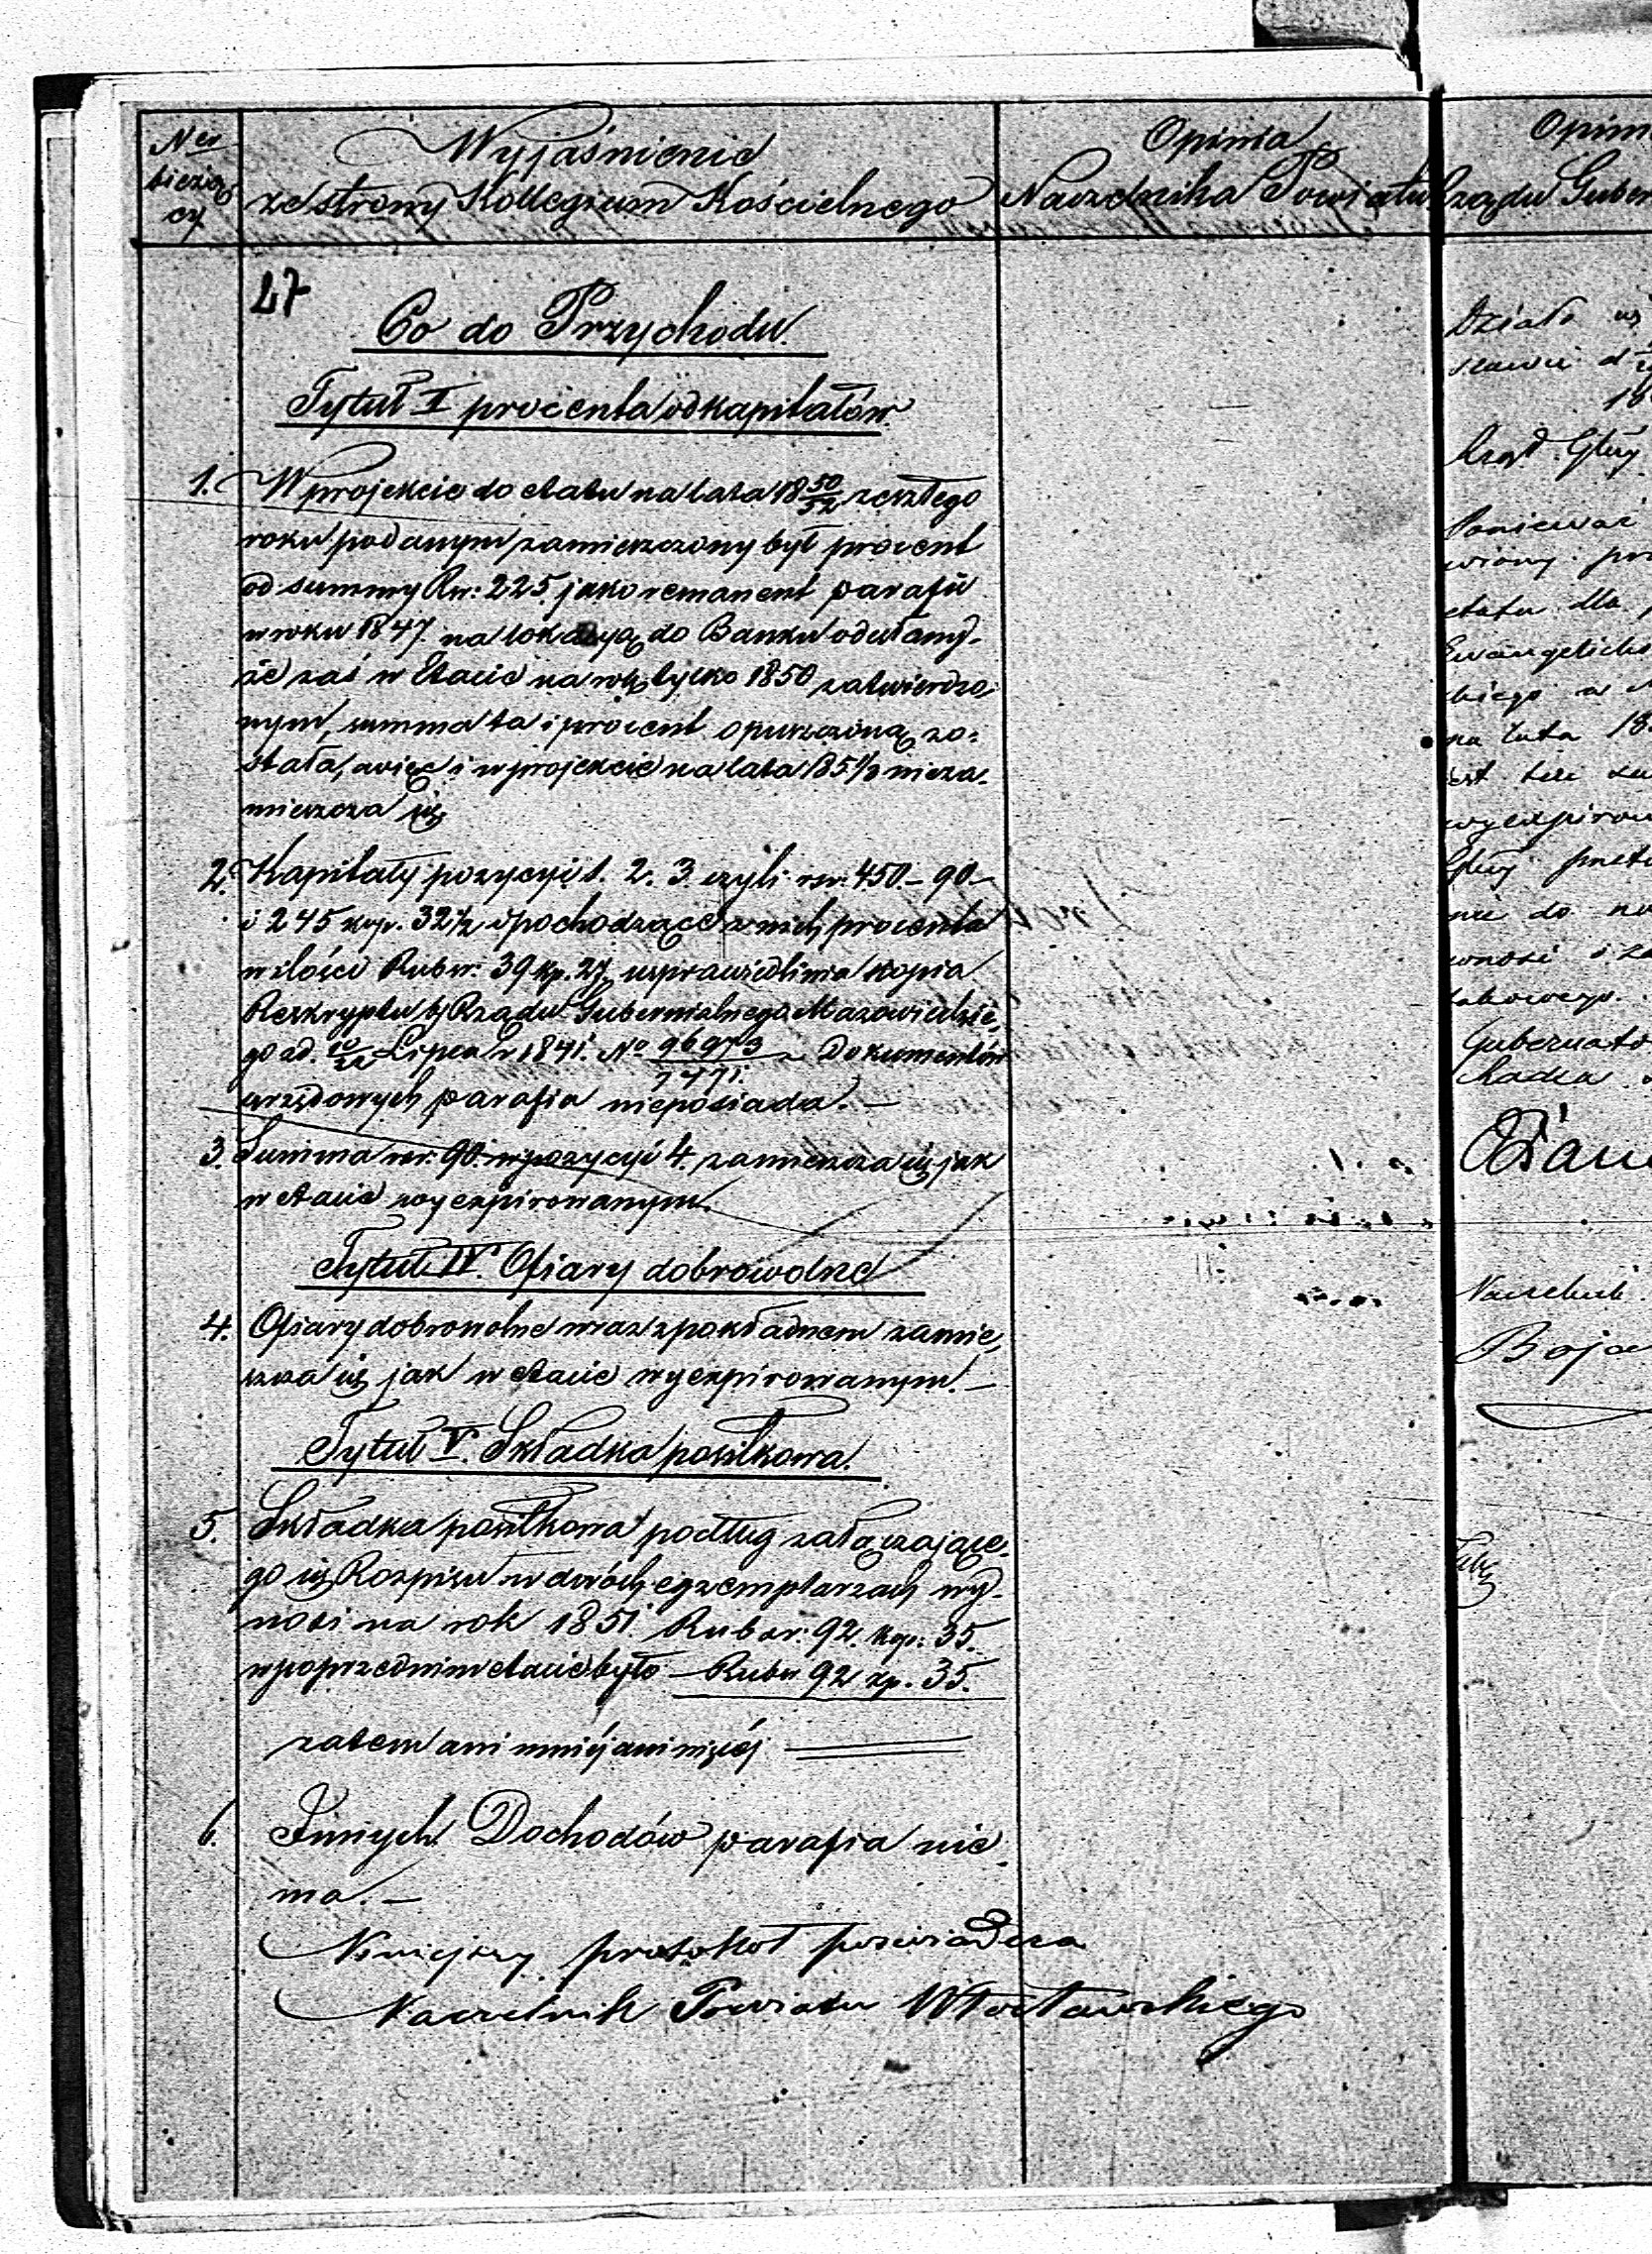 Ner bieżą cy
Wyjaśnienie
ze strony Kollegium Kościelnego
Opinia
Naczelnika Powiatu
Opin
Rządu Guber
47
Co do Przychodu.
Tytuł II procenta od kapitałów.
1. W projekcie do etatu na lata 18 50/52 zeszłego
roku podanym zamieszczony był procent
od summy Rsr: 225. jako remanent parafii
w roku 1847. na lokacyą do Banku odesłany-
że zaś w Etacie na rok tylko 1850 zatwierdzo-
nym, summa ta i procent opuszczoną zo-
stała, więc i w projekcie na lata 185 1/3 nie za-
mieszcza się.
2. Kapitały pozycyi 1. 2. 3. czyli rsr. 450. – 90 –
i 245 kop. 32 1/2 i pochodzące z nich procenta
w ilości Rubsr. 39 kp. 27. usprawiedliwia kopia
Reskryptu bj Rządu Gubernialnego Mazowieckie-
go z d. Lipca r 1841. No 96973/7771. – Dokumentów
urzędowych parafia nieposiada. –
3. Summa rsr. 90. w pozycyi 4. zamieszcza się jak
w etacie wyexpirowanym.
Tytuł IV. Ofiary dobrowolne
4. Ofiary dobrowolne wraz z pokładnem zamie-
szcza się jak w etacie wyexpirowanym. –
Tytuł V. Składka posiłkowa.
5. Składka posiłkowa podług załączające-
go się Rozpisu w dwóch egzemplarzach wy-
nosi na rok 1851. Rubsr: 92. kop: 35.
w poprzednim etacie było – Rubsr 92 kp. 35.
zatem ani mniéj ani więcéj
6. Innych Dochodów parafia nie
ma. –
Niniejszy protokół poświadcza
Naczelnik Powiatu Włocławskiego
Działo
18
Rząd Głny
Ponieważ
wiony prz
etatu dla
Ewangelicko
na lata 18
wyexpirow
Gubernato
Radca
Naczelnik